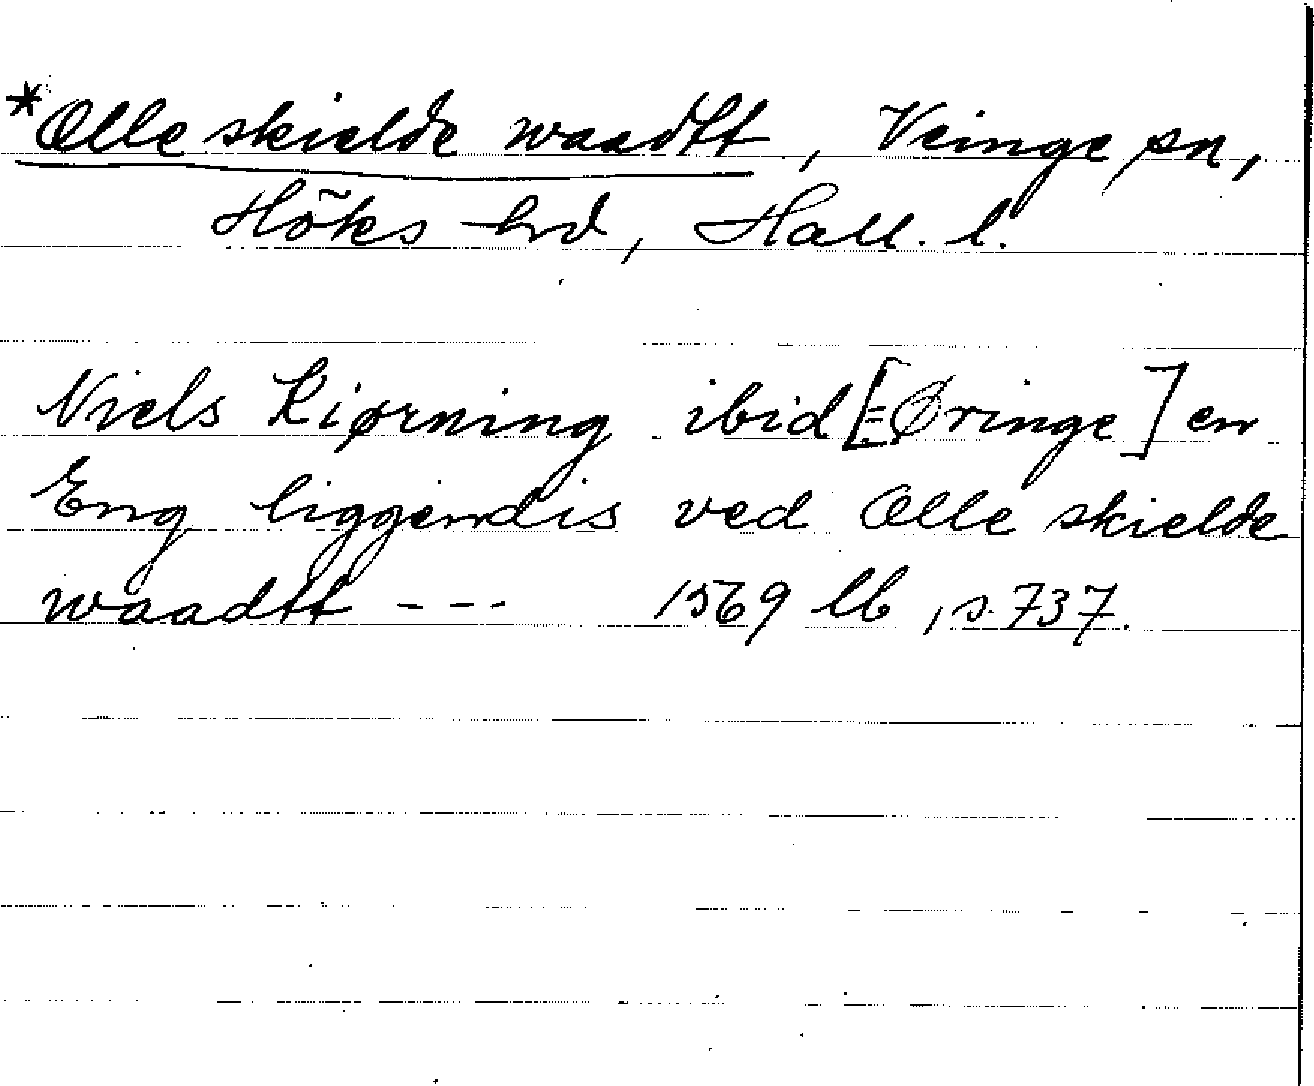 *Ølle skielde waadtt, Veinge sn,
Höks hrd, Hall. l.
Niels Kiørning ibid [= Øringe] en
Eng liggendis ved Ølle skielde
waadtt --- 1569 lb, s. 737.